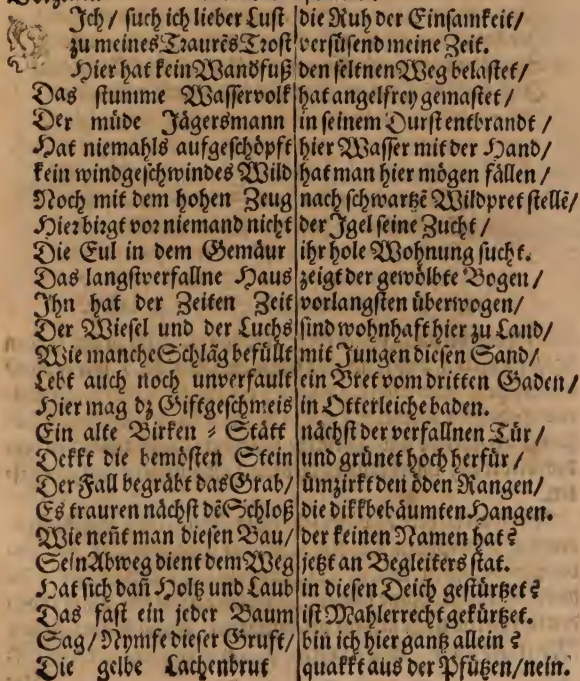 Ich / such ich lieber Lust die Ruh der Einsamkeit /
zu meines Traurēs Trost versüsend meine Zeit.
Hier hat kein Wandfuß den seltnen Weg belastet /
Das stumme Wasservolk hat angelfrey gemastet /
Der müde Jägersmann in seinem Durst entbrandt /
Hat niemahls aufgeschöpft hier Wasser mit der Hand /
kein windgeschwindes Wild hat man hier mögen fällen /
Noch mit dem hohen Zeug nach schwartzē Wildpret stellē /
Hier birgt vor niemand nicht der Igel seine Zucht /
Die Eul in dem Gemäur ihr hole Wohnung sucht.
Das langstverfallne Haus zeigt der gewölbte Bogen /
Ihn hat der Zeiten Zeit vorlangsten überwogen /
Der Wiesel und der Luchs sind wohnhaft hier zu Land /
Wie manche Schläg befüllt mit Jungen diesen Sand /
Lebt auch noch unverfault ein Bret vom dritten Gaden /
Hier mag dz Giftgeschmeis in Otterleiche baden.
Ein alte Birken = Stätt nächst der verfallnen Tür /
Dekkt die bemösten Stein und grünet hoch herfür /
Der Fall begräbt das Grab / ümzirkt den öden Rangen /
Es trauren nächst dē Schloß die dikkbebäumten Hangen.
Wie neñt man diesen Bau / der keinen Namen hat?
Sein Abweg dient dem Weg jetzt an Begleiters stat.
Hat sich dañ Holtz und Laub in diesen Deich gestürtzet?
Das fast ein jeder Baum ist Mahlerrecht gekürtzet.
Sag / Nymfe dieser Gruft / bin ich hier gantz allein?
Die gelbe Lachenbrut quakkt aus der Pfützen / nein.